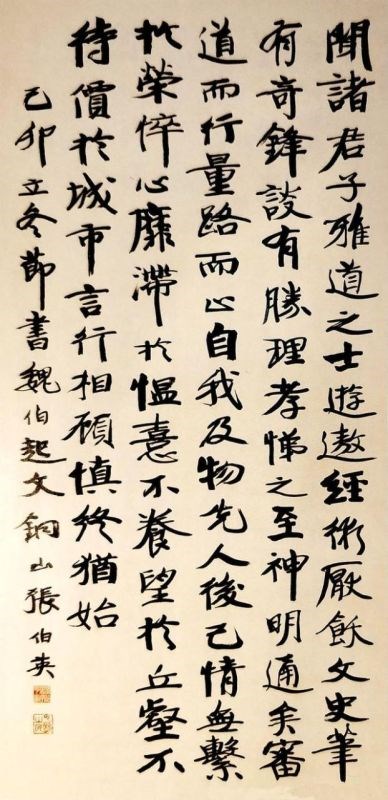 聞諸君子雅道之士遊遨經術厭飫文史筆
有奇鋒談有勝理孝悌之至神明通矣審
道而行量路而止自我及物先人後己情無繫
於榮悴心靡滯於愠喜不養望於丘壑不
待價於城市言行相顧慎終猶始
己卯立冬節書魏伯起文銅山張伯英